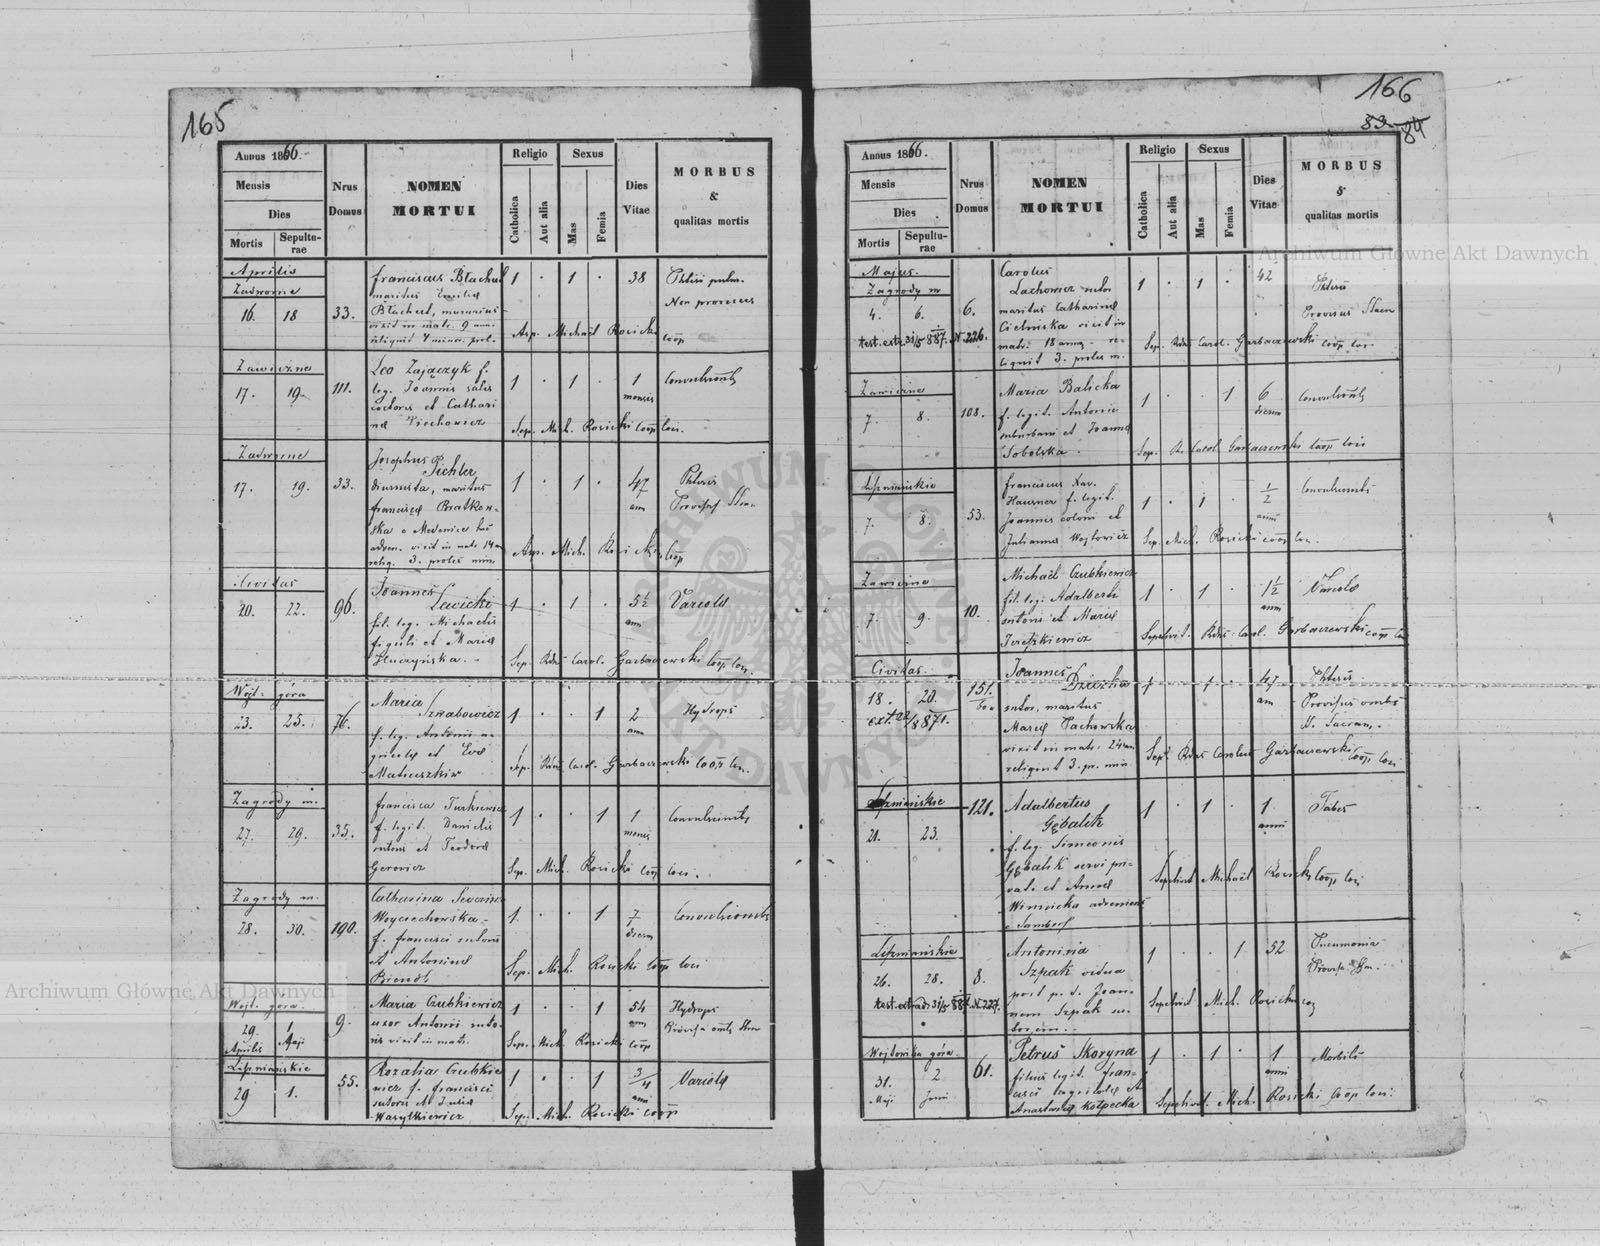 165
Annus 1866.
Mensis
Dies
Mortis
Sepulturae
Nrus Domus
NOMEN MORTUI
Religio
Catholica
Aut alia
Sexus
Mas
Femia
Dies Vitae
MORBUS & qualitas mortis
Aprilis
Zadworne
16. 18 33.
Franciscus Błachut 1 . 1 . 38
maritus
Błachut, murarius
vixit in matr. 9 ann.
reliquit 4 prol.
Sep. Michaël Rosicki coop
Zawiczne
17. 19. 111.
Leo Zajączyk f. 1 . 1 . 1 mensis Convulsionib
leg. Joannis
et Cathari
nae Piechowicz
Sep. Mich. Rosicki coop loci.
Zadworne
17. 19. 33.
Josephus Pichler 1 . 1 . 47 ann Phtisis
diurnista, maritus
Francisca Bratkow-
ska
vixit in matr. 14 ann
reliq. 3. proles min.
Mich. Rosicki coop
Civitas
20. 22. 96.
Joannes Lewicki 1 . 1 . 5½ ann Variola
fil. leg. Michaelis
figuli et Maria
Huczyńska.
Sep. Rdus Carol. Garbaczewski coop loci.
Wojt. góra
23. 25. 76.
Maria Szwabowicz 1 . . 1 2 ann Hydrops
f. leg. Antonii a-
gricola et Eva
Matiuszkiw
Sep. Rdus Carol. Garbaczewski coop loci.
Zagrody m.
27. 29. 35.
Francisca Turkiewicz 1 . . 1 1 mensis Convulsionib
f. legit. Danielis
sutoris et Teodora
Gerowicz
Sep. Mich. Rosicki coop loci.
Zagrody m.
28. 30. 190.
Catharina Severina 1. . . 1 7 dierum Convulsionib
Woyciechowska
f. Francisci sutoris
et Antonina
Sep. Mich. Rosicki coop loci
Wojt. gora.
29. Aprilis 1 Maji 9.
Maria Czubkiewicz 1 . . 1 54 ann Hydrops
uxor Antonii suto-
ris vixit in matr.
Sep. Mich. Rosicki coop
Lipzniańskie
29 1. 55.
Rozalia Czubkie 1 . . 1 3/4 anni Variola
wicz f. Francisci
sutoris et Julia
Wasylkiewicz
Sep. Mich. Rosicki coop
166
83. 84
Annus 1866.
Mensis
Dies
Mortis
Sepulturae
Nrus Domus
NOMEN MORTUI
Religio
Catholica
Aut alia
Sexus
Mas
Femia
Dies Vitae
MORBUS & qualitas mortis
Majus.
Zagrody m
4. 6. 6.
Carolus Lachowicz sutor 1 . 1 . 42 Phtisis
maritus Catharina
Cielmska vixit in
matr. 18 annis re-
liquit 3. proles m.
test. extr. 31/5 887. N 226.
Sep. Rdus Carol. Garbaczewski coop loci.
Zawiczne
7. 8. 108.
Maria Balicka 1 . . 1 6 dierum Convulsionib
f. legit. Antonii
suburbani et Joanna
Sobolska.
Sep. R. Carol Garbaczewski coop loci
Lipzniańskie
7. 8. 53.
Franciscus Xav. 1 . 1 . ½ anni Convulsionib
Hausner f. legit.
Joannis coloni et
Julianna Wojtowicz
Sep. Mich. Rosicki coop loci.
Zawiczne
7. 9. 10.
Michaël Czubkiewicz 1 . 1 . 1½ ann Variola
fil. leg. Adalberti
sutoris et Maria
Sepelivit. Rdus Carol. Garbaczewski coop loci
Civitas.
18. 20. 151.
ext. 22/8 871.
Joannes 1 . 1 . 47 ann Phtisis
sutor, maritus
Maria Pachowska
vixit in matr. 24 ann
reliquit 3. pr. min
Provisus omb
S. Sacram.
Sep. Rdus Carolus Garbaczewski coop loci
Lipzniańskie
21. 23. 121.
Adalbertus Gębalik 1 . 1 . 1. anni Tabes
f. leg. Simeonis
Gębalik servi pri-
vati et Anna
Winnicka
e Sambor
Sepelivit Michaël Rosicki coop loci
Lipzniańskie
26. 28. 8.
Antonina Szpak vidua 1 . . 1 52 Pneumonia
post p. d. Joan-
nem Szpak su-
torem.
test. extrad. 31/5 887. N. 227.
Sepelivit Mich. Rosicki coop
Wojtowska góra.
31. Maji 2 Junii 61.
Petrus Skoryna 1 . 1 . 1 anni Morbili
filius legit. Fran-
cisci agricola et
Anastasia Kołpecka
Sepelivit. Mich. Rosicki coop loci.
Archiwum Główne Akt Dawnych
Archiwum Główne Akt Dawnych
ARCHIWUM GŁÓWNE AKT DAWNYCH